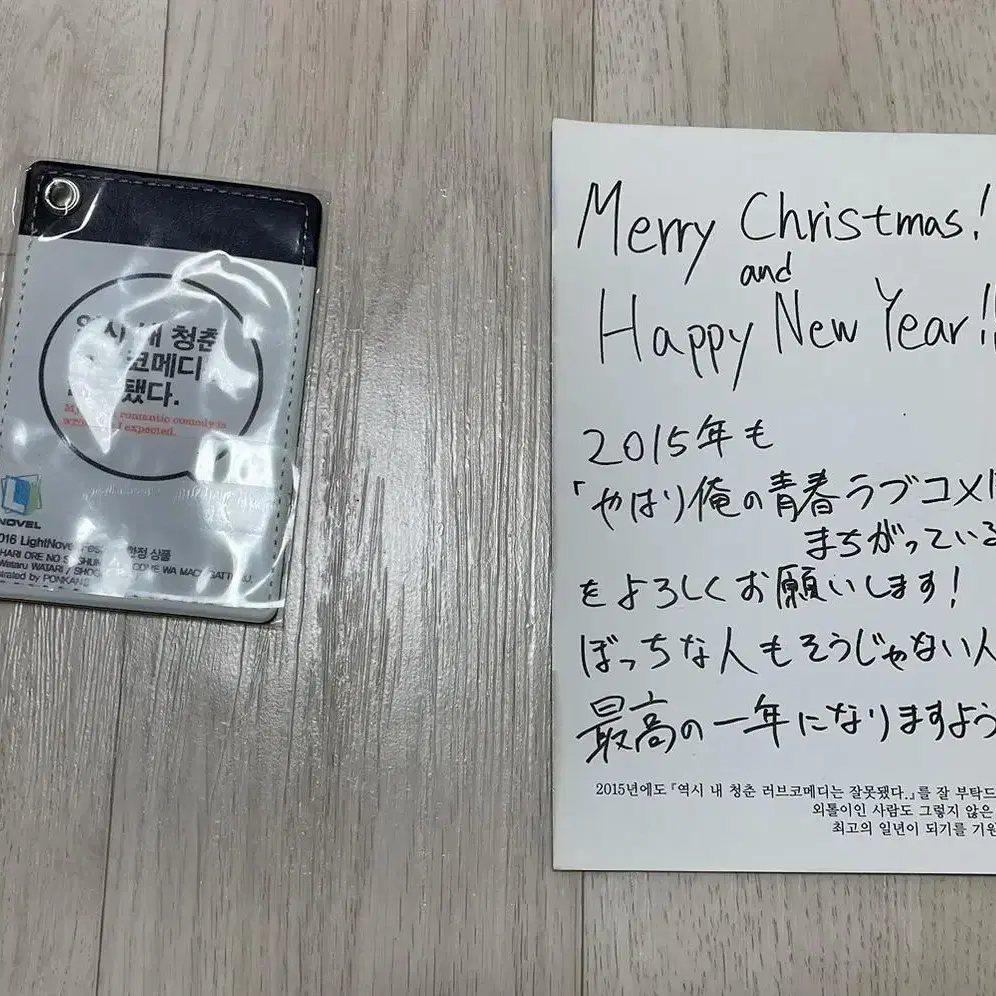 내 청춘
코메디
됐다.
romantic comedy is
I expected.
NOVEL
2016 LightNovel 한정 상품
ORE NO
Wataru WATARI / SHOG
by PONKAN
Merry Christmas!
and
Happy New Year!!
2015年も
「やはり俺の青春ラブコメは
まちがっている
をよろしくお願いします!
ぼっちな人もそうじゃない人
最高の一年になりますよう
2015년에도 『역시 내 청춘 러브코메디는 잘못됐다.』를 잘 부탁드
외톨이인 사람도 그렇지 않은
최고의 일년이 되기를 기원